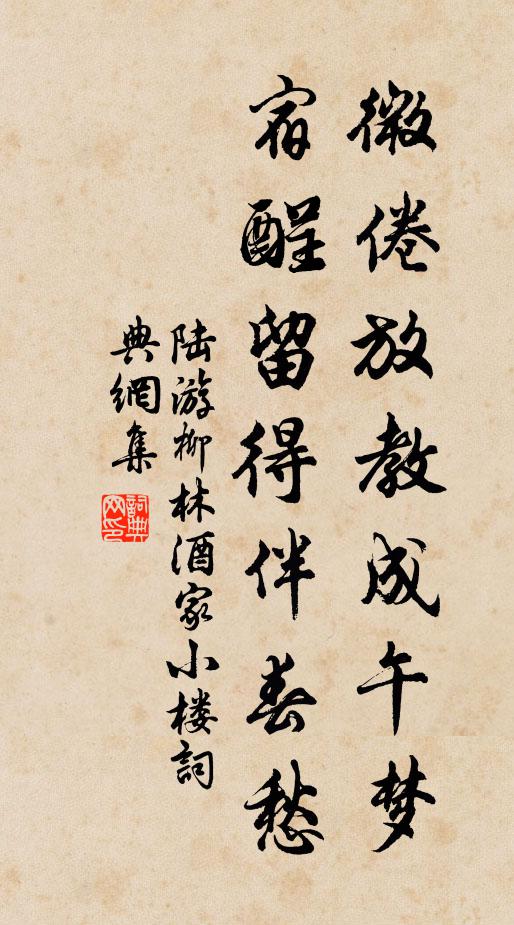 微倦放教成午梦
宿酲留得伴春愁
陆游柳林酒家小楼词
典網集
詞典
网印